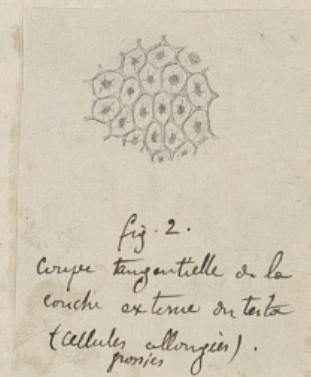 fig. 2.
Coupe tangentielle de la
couche externe du testa
(cellules allongées).
grossies